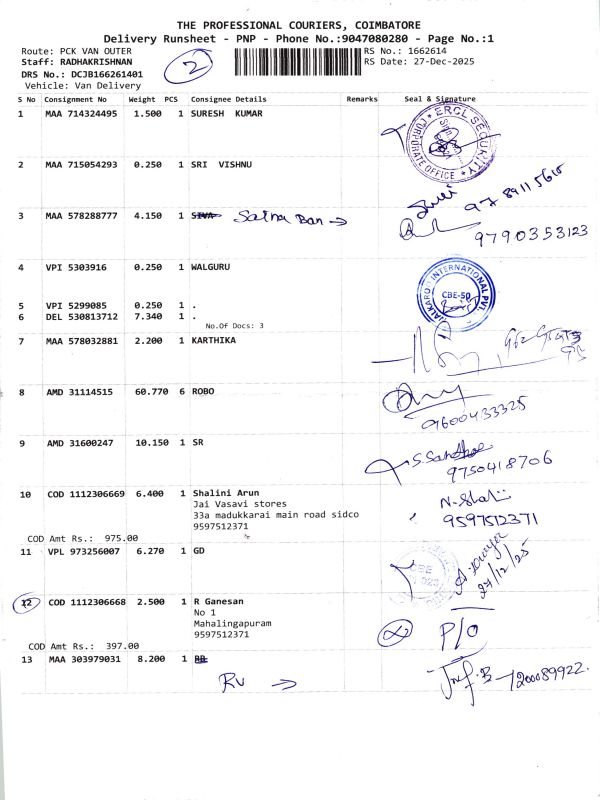 THE PROFESSIONAL COURIERS, COIMBATORE
Delivery Runsheet - PNP - Phone No.:9047080280 - Page No.:1
Route: PCK VAN OUTER
RS No.: 1662614
Staff: RADHAKRISHNAN
2
RS Date: 27-Dec-2025
DRS No.: DCJB166261401
Vehicle: Van Delivery
S No Consignment No Weight PCS Consignee Details Remarks Seal & Signature
1 MAA 714324495 1.500 1 SURESH KUMAR
ERCL SECURITY
CORPORATE OFFICE
2 MAA 715054293 0.250 1 SRI VISHNU
9789115610
3 MAA 578288777 4.150 1 SIVA Satna Ban →
9790353123
4 VPI 5303916 0.250 1 WALGURU
INTERNATIONAL PVT.
CBE-50
5 VPI 5299085 0.250 1 .
6 DEL 530813712 7.340 1 .
No.Of Docs: 3
7 MAA 578032881 2.200 1 KARTHIKA
8 AMD 31114515 60.770 6 ROBO
9600433325
9 AMD 31600247 10.150 1 SR
9750418706
10 COD 1112306669 6.400 1 Shalini Arun
Jai Vasavi stores
33a madukkarai main road sidco
9597512371
9597512371
COD Amt Rs.: 975.00
11 VPL 973256007 6.270 1 GD
27/12/25
12 COD 1112306668 2.500 1 R Ganesan
No 1
Mahalingapuram
9597512371
P/O
COD Amt Rs.: 397.00
13 MAA 303979031 8.200 1 RB
RV →
7200089922.